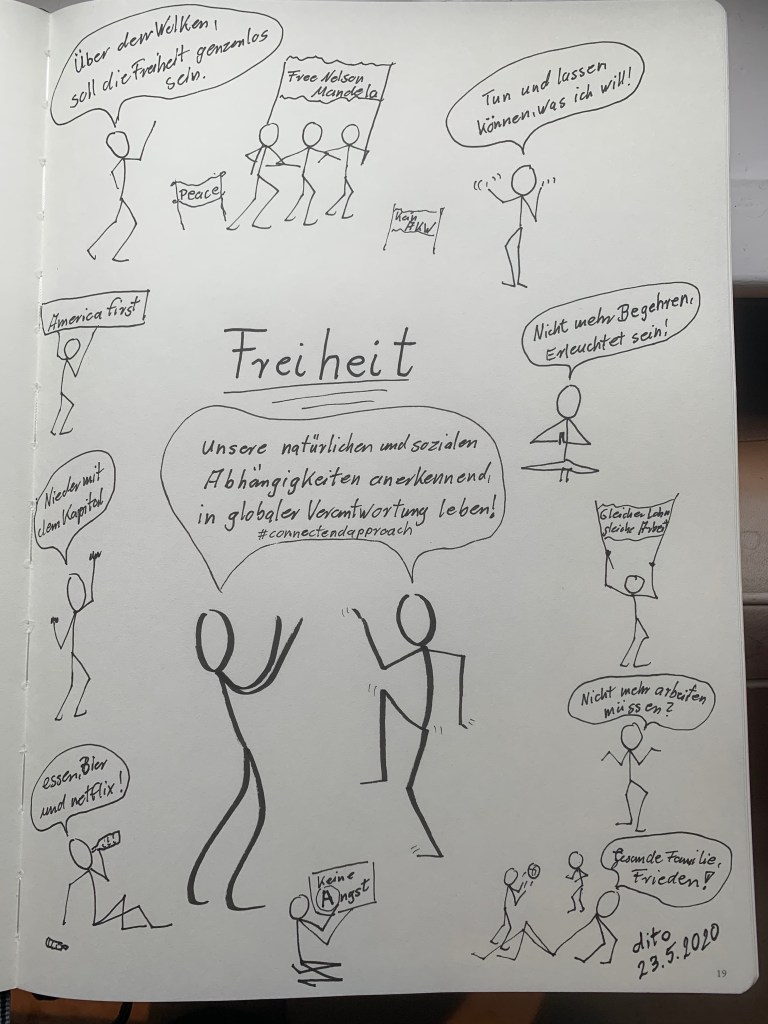 Über den Wolken,
soll die Freiheit grenzenlos
sein.
Free Nelson
Mandela
Tun und lassen
können, was ich will!
Peace
Kein
AKW
America first!
Nicht mehr Begehren,
Erleuchtet sein!
Freiheit
Unsere natürlichen und sozialen
Abhängigkeiten anerkennend,
in globaler Verantwortung leben!
#connectendapproach
Nieder mit
dem Kapital
Gleicher Lohn
gleiche Arbeit
Nicht mehr arbeiten
müssen?
essen, Bier
und netflix!
Keine
Angst
Gesunde Familie,
Frieden!
dito
23.5.2020
19